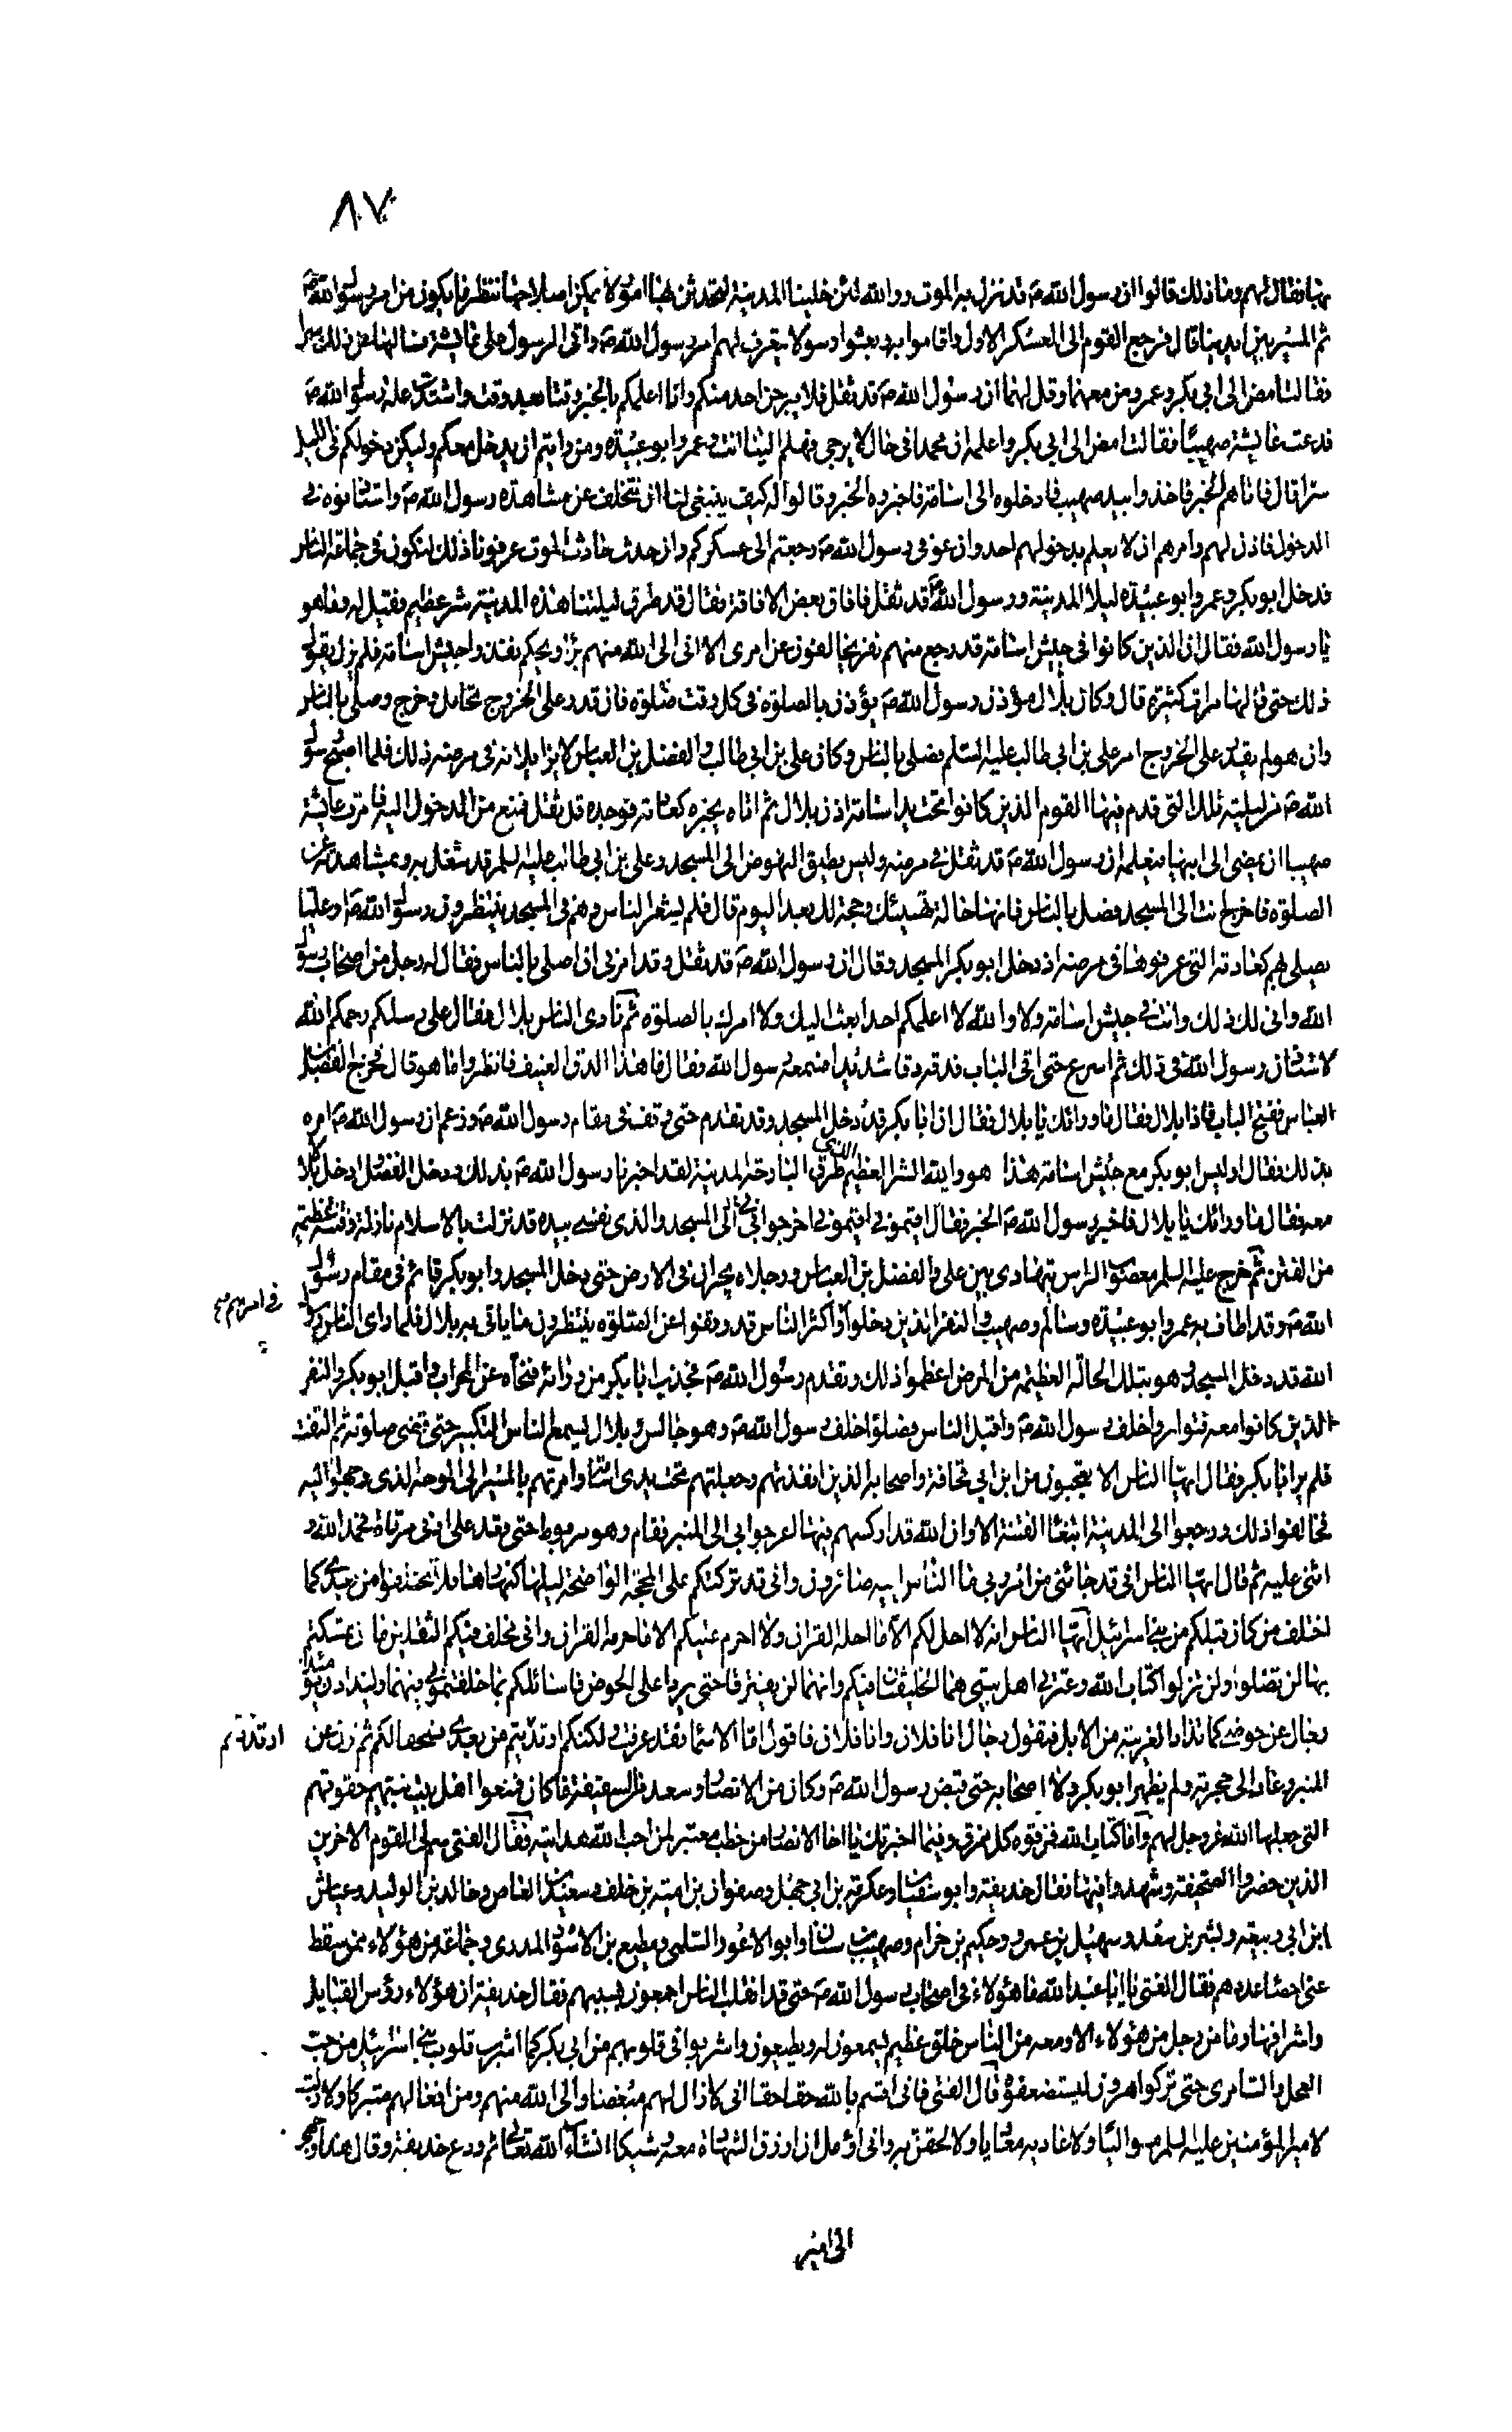 ٨٧
بها فقال لهم وما ذلك قالوا ان رسول الله ص قد نزل به الموت ووالله لئن خلينا المدينة لتحدثن بها امور لا يمكن اصلاحها ننظر ما يكون من امر رسول الله ص
ثم المسير بين ايدينا قال فرجع القوم الى العسكر الاول واقاموا به وبعثوا رسولا يتعرف لهم امر رسول الله ص واتى الرسول الى عايشة فسالها عن ذلك سرا
فقالت امض الى ابي بكر وعمر ومن معهما وقل لهما ان رسول الله ص قد ثقل فلا يبرحن احد منكم وانا اعلمكم بالخبر وقتا بعد وقت واشتدت علة رسول الله ص
فدعت عايشة صهيبا فقالت امض الى ابي بكر واعلمه ان محمدا في حال لا يرجى فهلم الينا انت وعمر وابو عبيدة ومن رايتم ان يدخل معكم وليكن دخولكم في الليل
سرا قال فاتاهم الخبر فاخذوا بيد صهيب فادخلوه الى اسامة فاخبروه الخبر وقالوا له كيف ينبغي لنا ان نتخلف عن مشاهدة رسول الله ص واستاذنوه في
الدخول فاذن لهم وامرهم ان لا يعلم بدخولهم احد وان عوفي رسول الله ص رجعتم الى عسكركم وان حدث حادث الموت عرفونا ذلك لنكون في جماعة الناس
فدخل ابو بكر وعمر وابو عبيدة ليلا المدينة ورسول الله ص قد ثقل فافاق بعض الافاقة فقال قد طرق ليلتنا هذه المدينة شر عظيم فقيل له وما هو
يا رسول الله فقال ان الذين كانوا في جيش اسامة قد رجع منهم نفر يخالفون عن امري الا اني الى الله منهم برئ ويحكم نفذوا جيش اسامة فلم يزل يقول
ذلك حتى قالها مرات كثيرة قال وكان بلال مؤذن رسول الله ص يؤذن بالصلوة في كل وقت صلوة فان قدر على الخروج تحامل وخرج وصلى بالناس
وان هو لم يقدر على الخروج امر علي بن ابي طالب عليه السلم فصلى بالناس وكان علي بن ابي طالب والفضل بن العباس لا يزايلانه في مرضه ذلك فلما اصبح رسول
الله ص من ليلته تلك التي قدم فيها القوم الذين كانوا تحت يد اسامة اذن بلال ثم اتاه يخبره كعادته فوجده قد ثقل فمنع من الدخول اليه فامرت عايشة
صهيبا ان يمضي الى ابيها فيعلمه ان رسول الله ص قد ثقل في مرضه وليس يطيق النهوض الى المسجد وعلي بن ابي طالب عليه السلم قد شغل به وبمشاهدته عن
الصلوة فاخرج انت الى المسجد فصل بالناس فانها حالة تهنيئك وحجة لك بعد اليوم قال فلم يشعر الناس وهم في المسجد ينتظرون رسول الله ص او عليا
يصلي بهم كعادته التي عرفوها في مرضه اذ دخل ابو بكر المسجد وقال ان رسول الله ص قد ثقل وقد امرني ان اصلي بالناس فقال له رجل من اصحاب رسول
الله واني لك ذلك وانت في جيش اسامة ولا والله لا اعلمكم احدا بعث اليك ولا امرك بالصلوة ثم نادى الناس بلال فقال على رسلكم رحمكم الله
لاستاذن رسول الله في ذلك ثم اسرع حتى اتى الباب فدقه دقا شديدا فسمعه رسول الله فقال ما هذا الدق العنيف فانظروا ما هو قال فخرج الفضل بن
العباس ففتح الباب فاذا بلال فقال ما وراءك يا بلال فقال ان ابا بكر قد دخل المسجد وقد تقدم حتى وقف في مقام رسول الله ص وزعم ان رسول الله ص امره
بذلك فقال اوليس ابو بكر مع جيش اسامة هذا هو والله الشر العظيم الذي طرق البارحة المدينة لقد اخبرنا رسول الله ص بذلك ودخل الفضل وادخل بلالا
معه فقال ما وراءك يا بلال فاخبر رسول الله ص الخبر فقال اقيموني اقيموني اخرجوا بي الى المسجد والذي نفسي بيده قد نزلت بالاسلام نازلة وفتنة عظيمة
من الفتن ثم خرج عليه السلم معصوب الراس يتهادى بين علي والفضل بن العباس ورجلاه يجران في الارض حتى دخل المسجد وابو بكر قائم في مقام رسول
الله ص وقد اطاف به عمر وابو عبيدة وسالم وصهيب والنفر الذين دخلوا واكثر الناس قد وقفوا عن الصلوة ينتظرون ما ياتي به بلال فلما راى الناس رسول
الله قد دخل المسجد وهو بتلك الحالة العظيمة من المرض اعظموا ذلك وتقدم رسول الله ص فجذب ابا بكر من ورائه فنحاه عن المحراب واقبل ابو بكر والنفر
الذين كانوا معه فتواروا خلف رسول الله ص واقبل الناس فصلوا خلف رسول الله ص وهو جالس وبلال يسمع الناس التكبير حتى قضى صلوته ثم التفت
فلم ير ابا بكر فقال ايها الناس الا تعجبون من ابن ابي قحافة واصحابه الذين انفذتهم وجعلتهم تحت يدي اسامة وامرتهم بالمسير الى الوجه الذي وجهوا اليه
فخالفوا ذلك ورجعوا الى المدينة ابتغاء الفتنة الا وان الله قد اركسهم فيها اعرجوا بي الى المنبر فقام وهو مربوط حتى قعد على ادنى مرقاة فحمد الله و
اثنى عليه ثم قال ايها الناس اني قد جائني من امر ربي ما الناس اليه صائرون واني قد تركتكم على المحجة الواضحة ليلها كنهارها فلا تختلفوا من بعدي كما
اختلف من كان قبلكم من بني اسرائيل ايها الناس انه لا احل لكم الا ما احله القران ولا احرم عليكم الا ما حرمه القران واني مخلف فيكم الثقلين ما ان تمسكتم
بهما لن تضلوا ولن تزلوا كتاب الله وعترتي اهل بيتي هما الخليفتان فيكم وانهما لن يفترقا حتى يردا علي الحوض فاسائلكم بماذا خلفتموني فيهما وليذادن يومئذ
رجال عن حوضي كما تذاد الغريبة من الابل فيقول رجال انا فلان وانا فلان فاقول اما الاسماء فقد عرفت ولكنكم ارتددتم من بعدي فسحقا لكم ثم نزل عن
المنبر وعاد الى حجرته ولم يظهر ابو بكر ولا اصحابه حتى قبض رسول الله ص وكان من الانصار وسعد في السقيفة ما كان فمنعوا اهل بيت نبيهم حقوقهم
التي جعلها الله عز وجل لهم واما كتاب الله فمزقوه كل ممزق وفيما اخبرتك يا اخا الانصار من خطب معتبر لمن احب الله هدايته فقال الفتى سم لي القوم الاخرين
الذين حضروا الصحيفة وشهدوا فيها فقال حذيفة وابو سفيان وعكرمة بن ابي جهل وصفوان بن امية بن خلف وسعيد بن العاص وخالد بن الوليد وعياش
ابن ابي ربيعة وبشر بن سعد وسهيل بن عمرو وحكيم بن حزام وصهيب بن سنان وابو الاعور السلمي ومطيع بن الاسود المدري وجماعة من هؤلاء ممن سقط
عني احصاء عددهم فقال الفتى يا ابا عبد الله ما هؤلاء في اصحاب رسول الله ص حتى قد انقلب الناس اجمعون بسببهم فقال حذيفة ان هؤلاء رؤس القبايل
واشرافها وما من رجل من هؤلاء الا ومعه من الناس خلق عظيم يسمعون له ويطيعون واشربوا في قلوبهم من ابي بكر كما اشرب قلوب بني اسرائيل من حب
العجل والسامري حتى تركوا هرون ليستضعفوه قال الفتى فاني اقسم بالله حقا حقا اني لا زال لهم مبغضا والى الله منهم ومن افعالهم متبرئا ولا زلت
لامير المؤمنين عليه السلم مواليا ولاعاديه معاديا ولالحقن به واني اؤمل ان ارزق الشهادة معه وشيكا انشاء الله تعالى ثم ودع حذيفة وقال هذا وجهي
الى امير